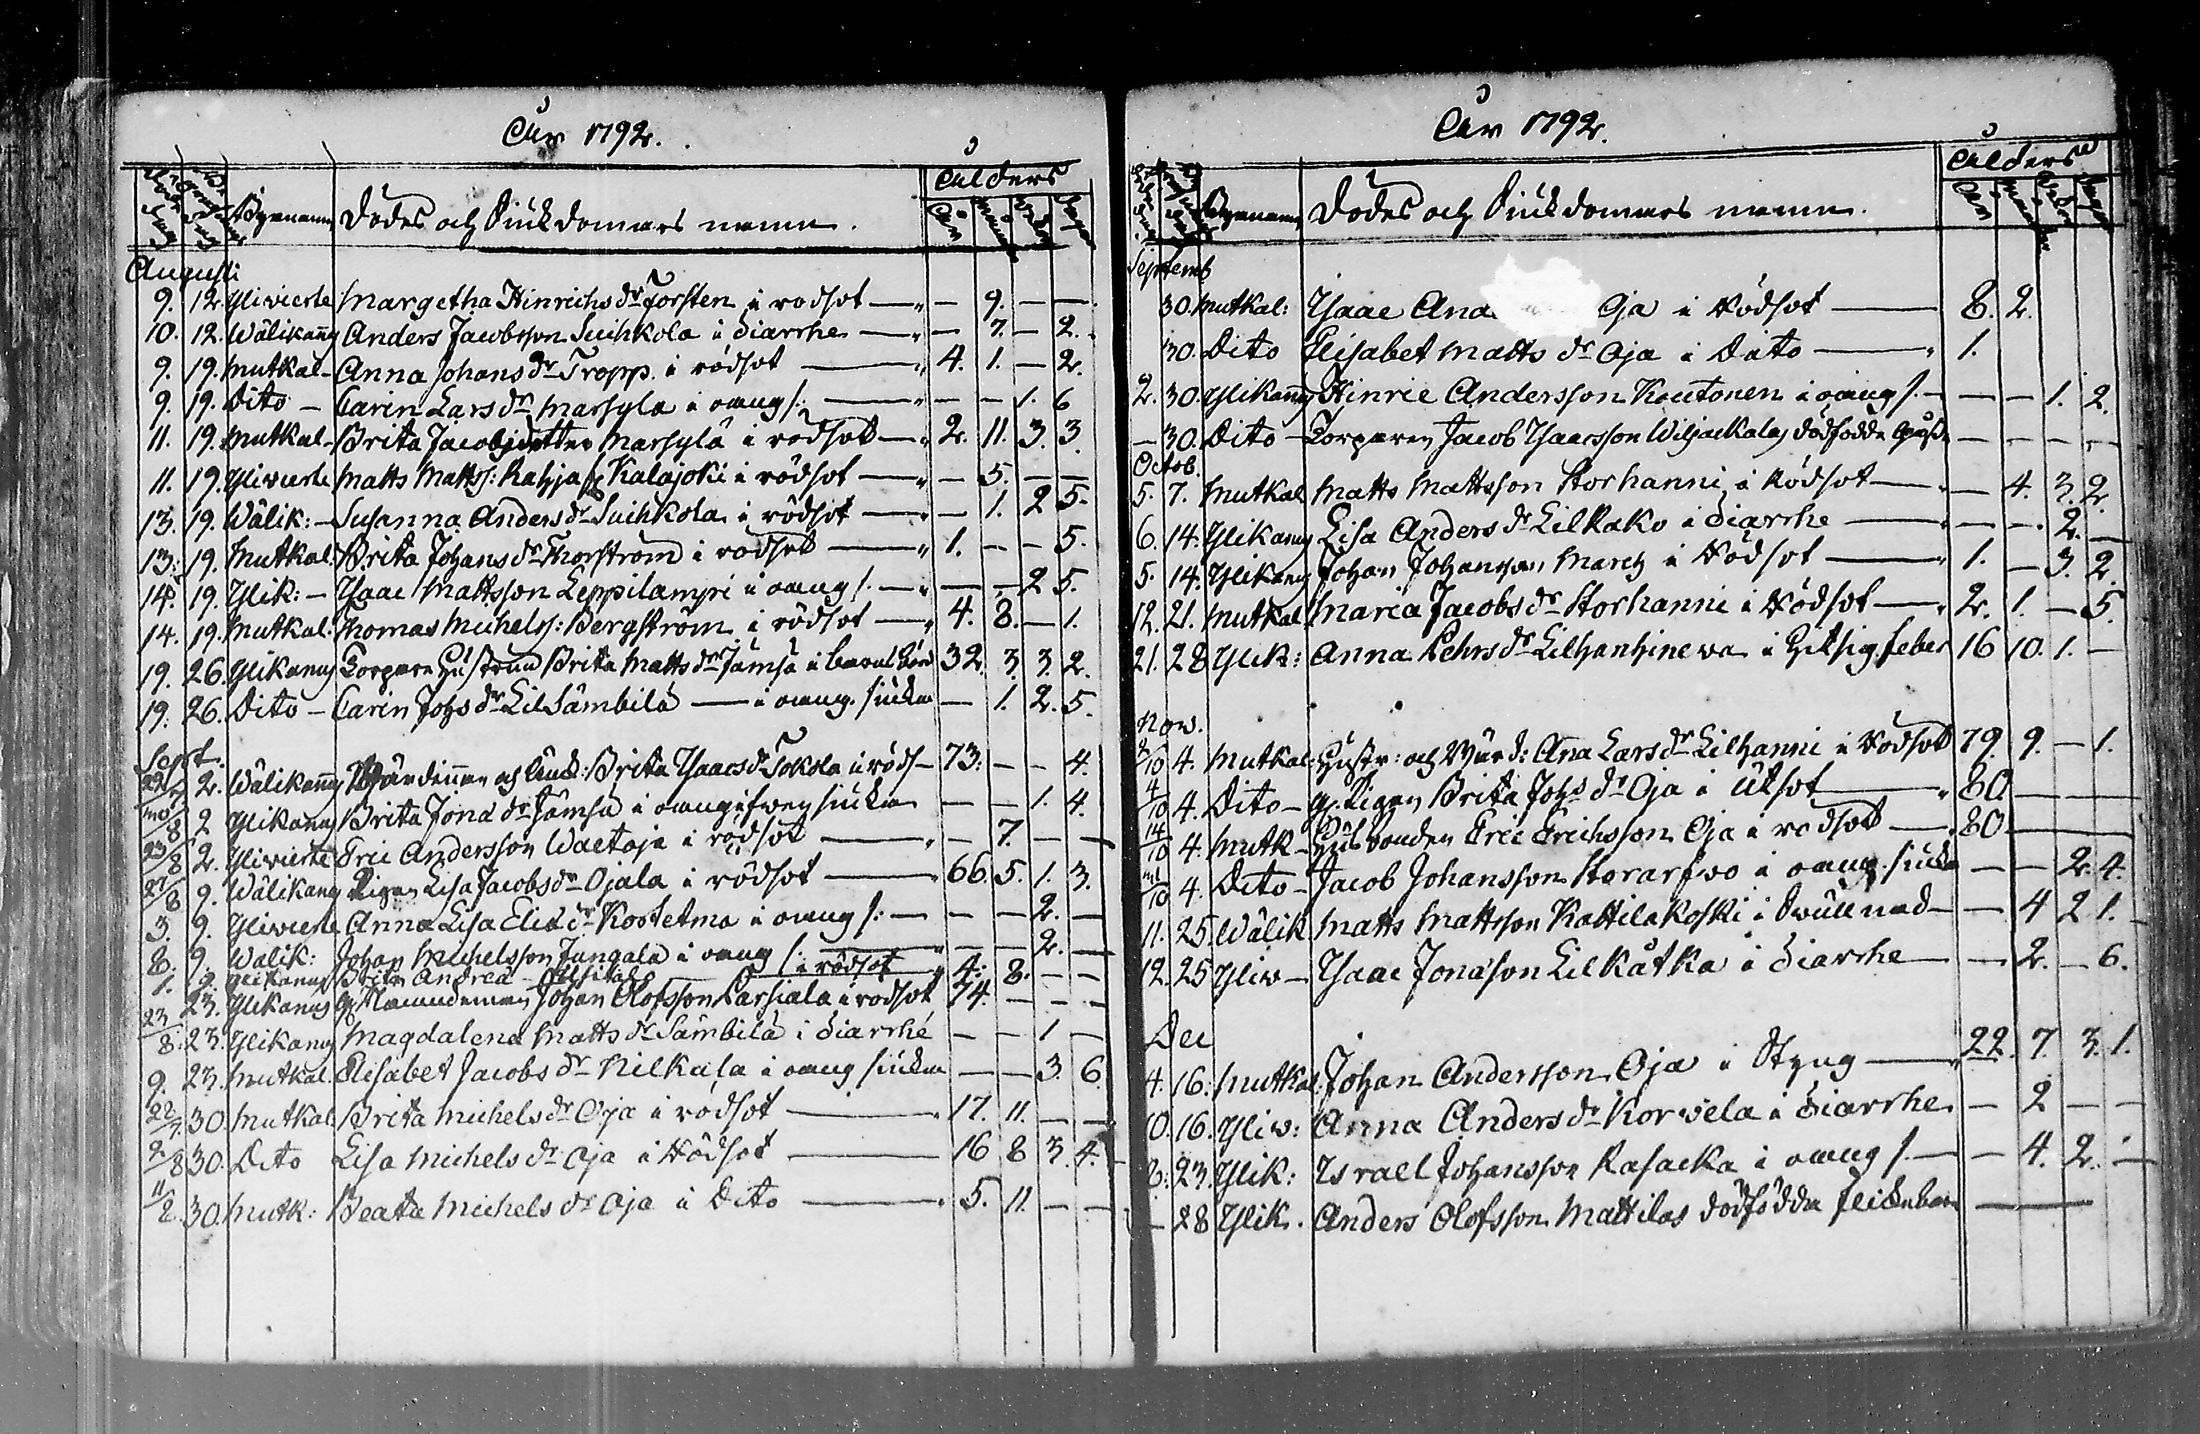 År 1792.
Döde Dag Begrafnings Dag Bynamn Dödes och Siukdomars namn. Ålders
År Månad Wekor Dagar
Augusti
9. 12. Yliviesk Margetha Hinrichs dr Torsten i rödsot — — 9. — —
10. 12. Wälikang Anders Jacobsson Suihkola i diarrhe — — 7. — 2.
9. 19. Mutkal- Anna Johans dr Tropp. i rödsot — 4. 1. — 2.
9. 19. Dito — Carin Lars dr Marsyla i oang s: — — — 1. 6
11. 19. Mutkal- Brita Jacobsdotter Marsylä i rödsot — 2. 11. 3. 3
11. 19. Yliviesk Matts Matts s: Kalajoki i rödsot — — 5. — —
13. 19. Wälik: — Susanna Anders dr Suihkola i rödsot — — 1. 2 5.
13. 19. Mutkal: Brita Johans dr Thorström i rödsot — 1. — — 5.
14. 19. Ylik: — Ysaac Mattsson Leppilampi i oang s. — — — 2 5.
14. 19. Mutkal: Thomas Michels s: Bergström i rödsot — 4. 8. — 1.
19. 26. Ylikang Torpare Hustrun Brita Matts dr Jämsä i barns börd 32. 3. 3. 2.
19. 26. Dito — Carin Johs dr Lil Sämbilä — i oang. siukm — 1. 2. 5.
Sept.
2. Wälikang Wärdinnan och Enk: Brita Ysaacs dr Tokola i röds — 73: — — 4.
8 2 Ylikang Brita Jona dr Jämsä i oangifwen siukm — — 1. 4.
23/8 2. Yliviesk Eric Andersson Waetoja i rödsot — — 7. — —
27/8 9. Wälikang Pigan Lisa Jacobs dr Ojala i rödsot — 66. 5. 1. 3.
3. 9. Yliviesk Anna Lisa Elis dr Kostetma i oang s: — — — 2. —
8. 9. Wälik: Johan Michelsson Jungala i oang s: — — — 2. —
1. 9. Ylikang Brita Andrea i rödsot 4. 8. — —
23. Ylikang Johan Olofsson Parsiala i rodsot 74. — — —
23/8. 23. Ylikang Magdalena Matts dr Sämbilä i diarrhé — — 1 —
9. 23. Mutkal. Elisabet Jacobs dr Nilkula i oang siukm — — 3. 6
22/7. 30. Mutkal Brita Michels dr Oja i rödsot — 17. 11. — —
2/8 30. Dito Lisa Michels dr Oja i Rödsot — 16 8 3. 4.
11/2. 30. Mutk: Beata Michels dr Oja i Dito — 5. 11. — —
År 1792.
Bynamn Dödes och Siukdomars namn. Ålders
År Månader Wekor Dagar
Septemb
30. Mutkal: Ysaac And Oja i Rödsot — 8. 2.
30. Dito Elisabet Matts dr Oja i Dito — 1.
2. 30. Ylikang Hinric Andersson Koutonen i oang s. — — — 1. 2.
— 30. Dito — Torparen Jacob Ysaacsson Wiljackalas dödfödde — — — —
Octob.
5. 7. Mutkal Matts Mattsson Storhanni i Rödsot — — 4. 3. 2.
6. 14. Ylikang Lisa Anders dr LilKako i diarrhe — — — 2. —
5. 14. Ylikang Johan Johansson March i Rödsot — 1. — 3. 2.
12. 21. Mutkal Maria Jacobs dr Storhanni i Rödsot — 2. 1. — 5.
21. 28 Ylik: Anna Pehrs dr Lilhanhinewa i Hitsig feber 16 10. 1. —
Now.
4. Mutkal: Hustr: och Wärd: Ana Lars dr Lilhanni i Rödsot 79 9. — 1.
4/10 4. Dito — Pigan Brita Johs dr Oja i Utsot — 80. —
14/10 4. Mutk — Husbonden Eric Erichsson Oja i rodsot — 80 —
4. Dito — Jacob Johansson Storarfwo i oang. siukm — — 2. 4.
11. 25. Wälik Matts Mattsson Kattilakoski i Swullnad — — 4 2 1.
12. 25 Yliw — Ysaac Jonasson Lilkätkä i diarrhe — — 2. — 6.
Dec
4. 16. Mutkal: Johan Andersson Oja i Styng — 22. 7. 3. 1.
10. 16. Yliw: Anna Anders dr Korwela i diarrhe — — 2 — —
8. 23. Ylik: Israel Johansson Rasacka i oang s. — — 4. 2. —
— 28 Ylik. Anders Olofsson Mattilas dödfödda flickebarn — —